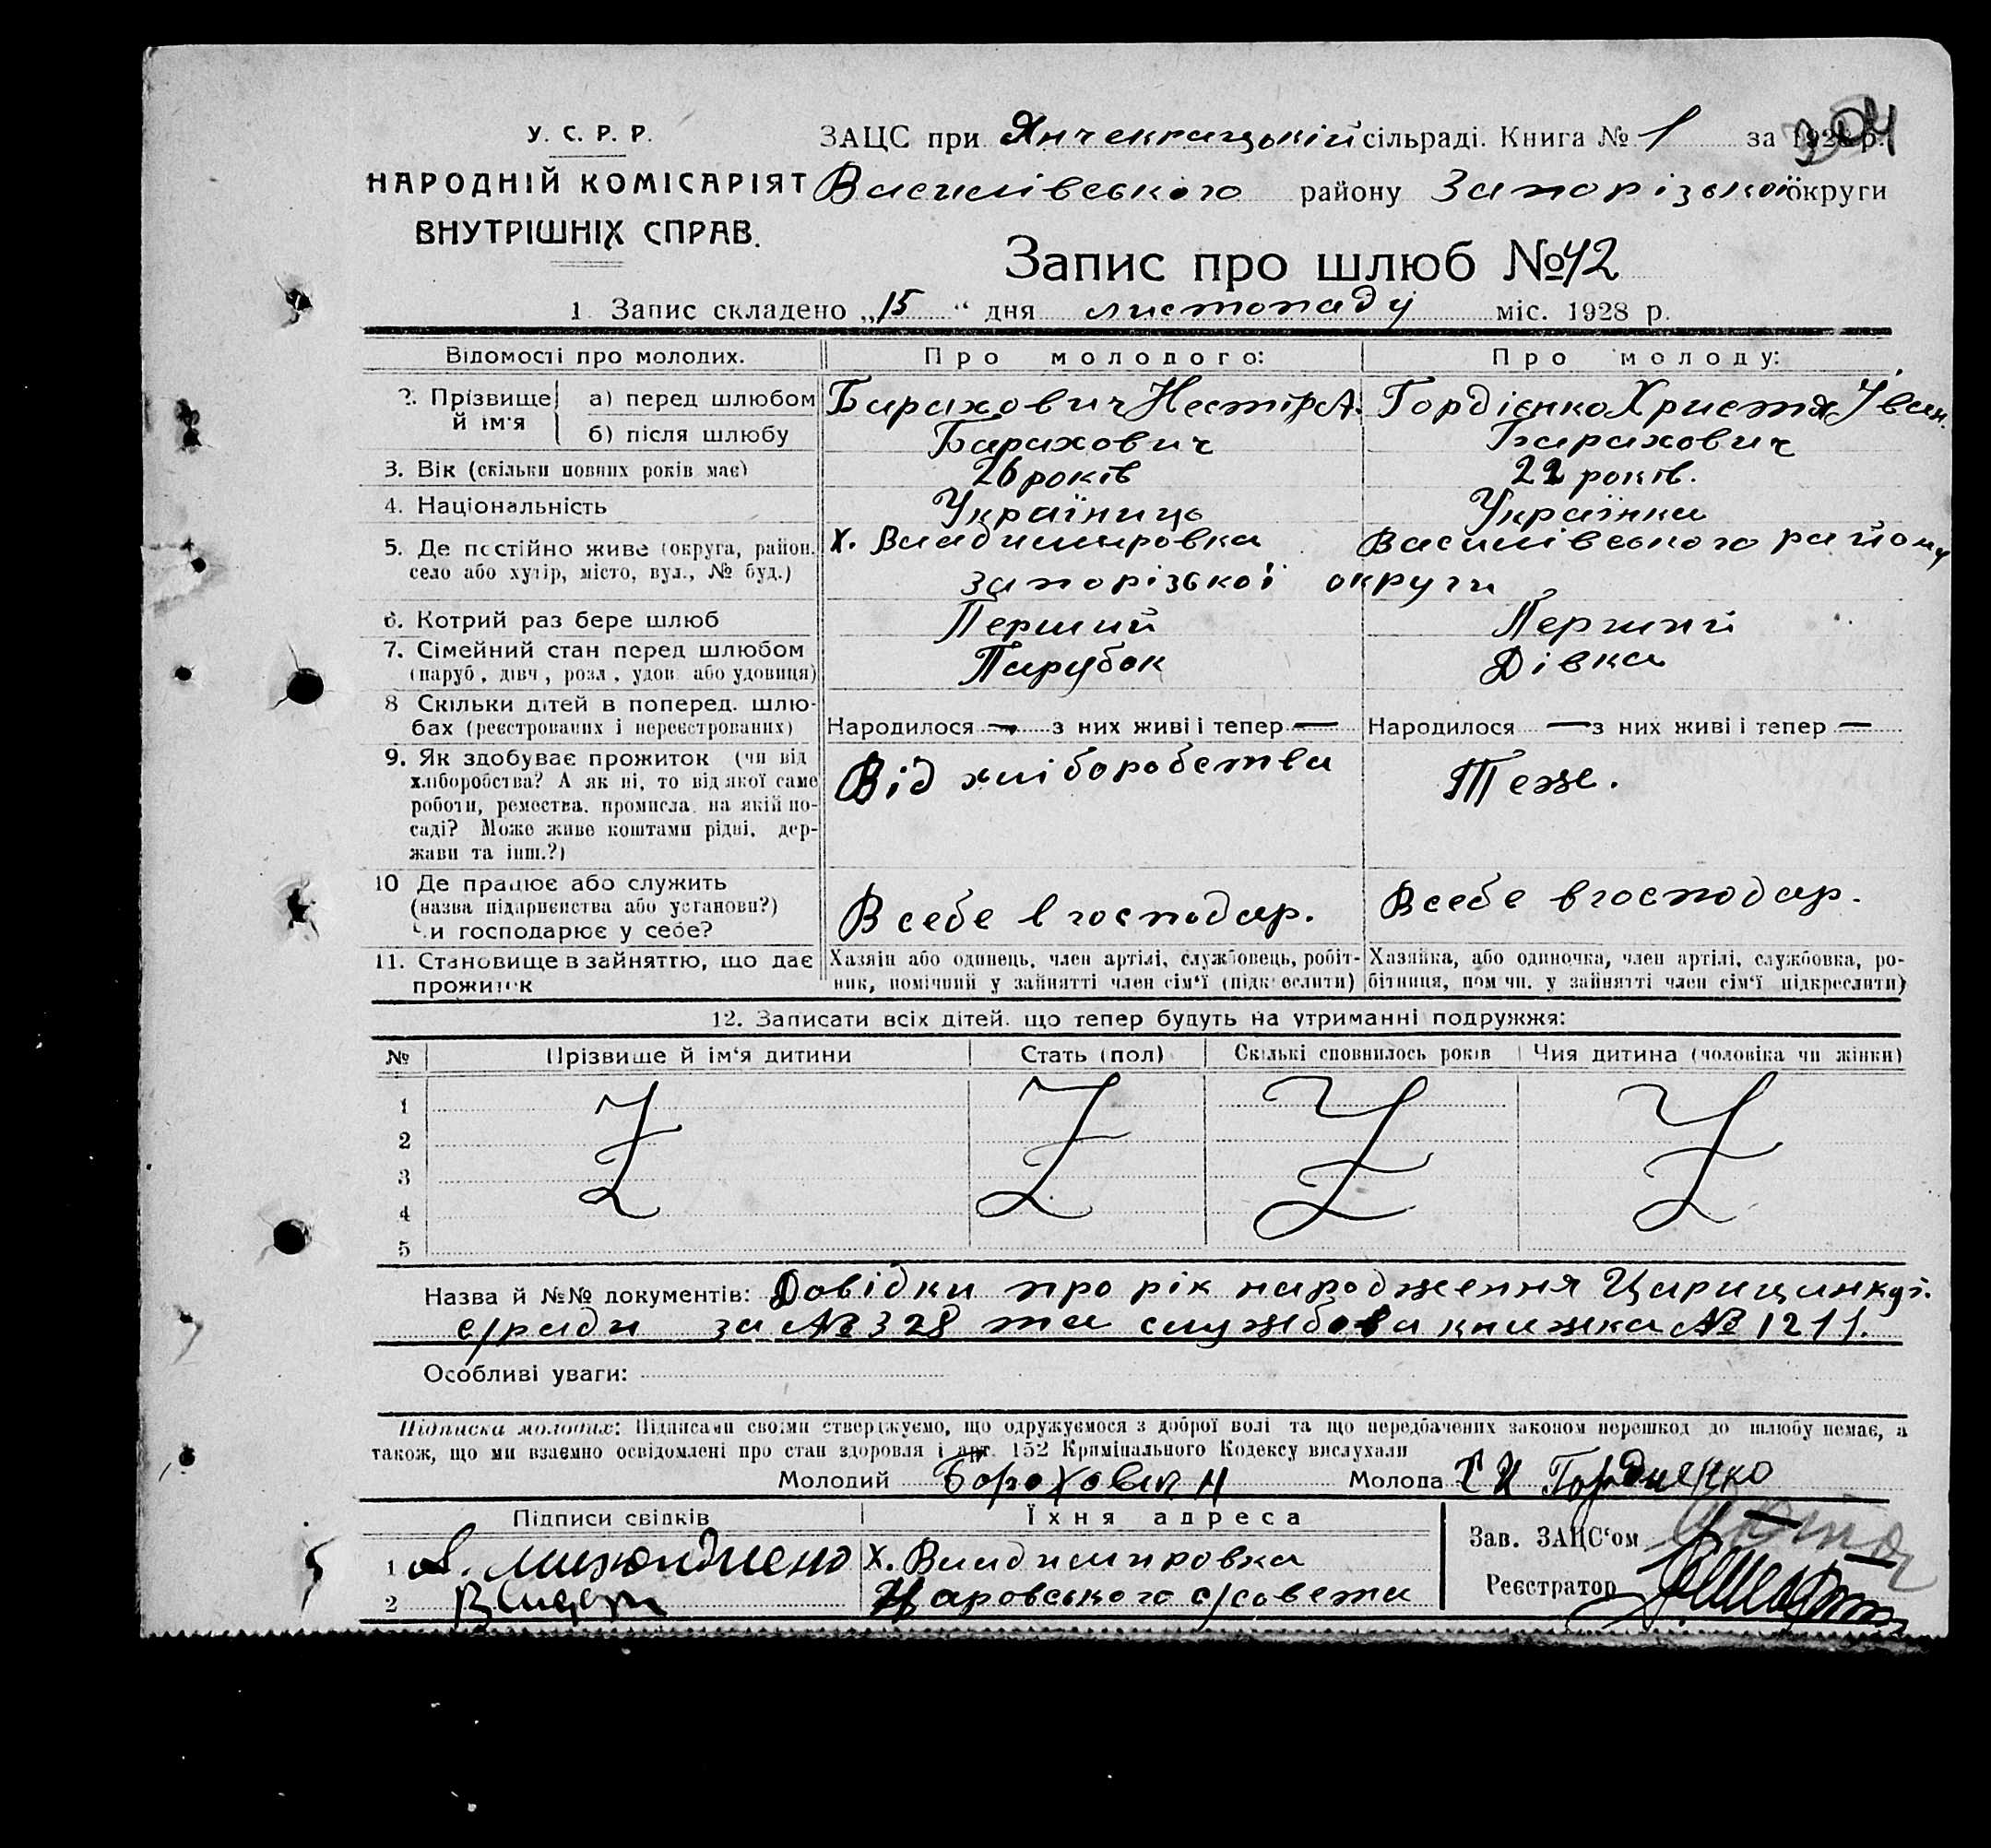 304
У. С. Р. Р.
НАРОДНІЙ КОМІСАРІЯТ
ВНУТРІШНІХ СПРАВ.
ЗАЦС при Янчекрацькій сільраді. Книга № 1 за 1928 р.
Василівського району Запорізької округи
Запис про шлюб № 42
1. Запис складено „15“ дня листопаду міс. 1928 р.
Відомості про молодих. Про молодого: Про молоду:
2. Прізвище й ім'я а) перед шлюбом Барахович Нестір А. Гордієнко Христя Іван.
б) після шлюбу Барахович Барахович
3. Вік (скільки повних років має) 26 років 22 років.
4. Національність Українць Українка
5. Де постійно живе (округа, район, х. Владимировка Василівського району
село або хутір, місто, вул., № буд.) запорізької округи
6. Котрий раз бере шлюб Перший Перший
7. Сімейний стан перед шлюбом Парубок Дівка
(паруб, дівч, розл, удов або удовиця)
8 Скільки дітей в поперед. шлю-
бах (реєстрованих і нереєстрованих) Народилося — з них живі і тепер — Народилося — з них живі і тепер —
9. Як здобуває прожиток (чи від Від хліборобства Теже.
хліборобства? А як ні, то від якої саме
роботи, ремества, промисла, на якій по-
саді? Може живе коштами рідні, дер-
жави та інш.?)
10 Де працює або служить
(назва підприєнства або установи?) В себе в господар. В себе в господар.
Чи господарює у себе?
11. Становище в зайняттю, що дає Хазяін або одинець, член артілі, службовець, робіт- Хазяйка, або одиночка, член артілі, службовка, ро-
прожиток ник, помічний у зайнятті член сім'ї (підкреслити) бітниця, помічн. у зайнятті член сім'ї підкреслити)
12. Записати всіх дітей, що тепер будуть на утриманні подружжя:
№ Прізвище й ім'я дитини Стать (пол) Скількі сповнилось років Чия дитина (чоловіка чи жінки)
1
2
3
4
5
Назва й №№ документів: Довідки про рік народження
с/ради за № 328 та службова книжка № 1211.
Особливі уваги:
Підписка молодих: Підписами своїми стверджуємо, що одружуємося з доброї волі та що передбачених законом перешкод до шлюбу немає, а
також, що ми взаємно освідомлені про стан здоровля і арт. 152 Кримінального Кодексу вислухали
Молодий Борохович Н Молода Х И Гордиенко
Підписи свідків Їхня адреса
1 х. Владимировка
2 с/совета
Зав. ЗАЦС'ом
Реєстратор